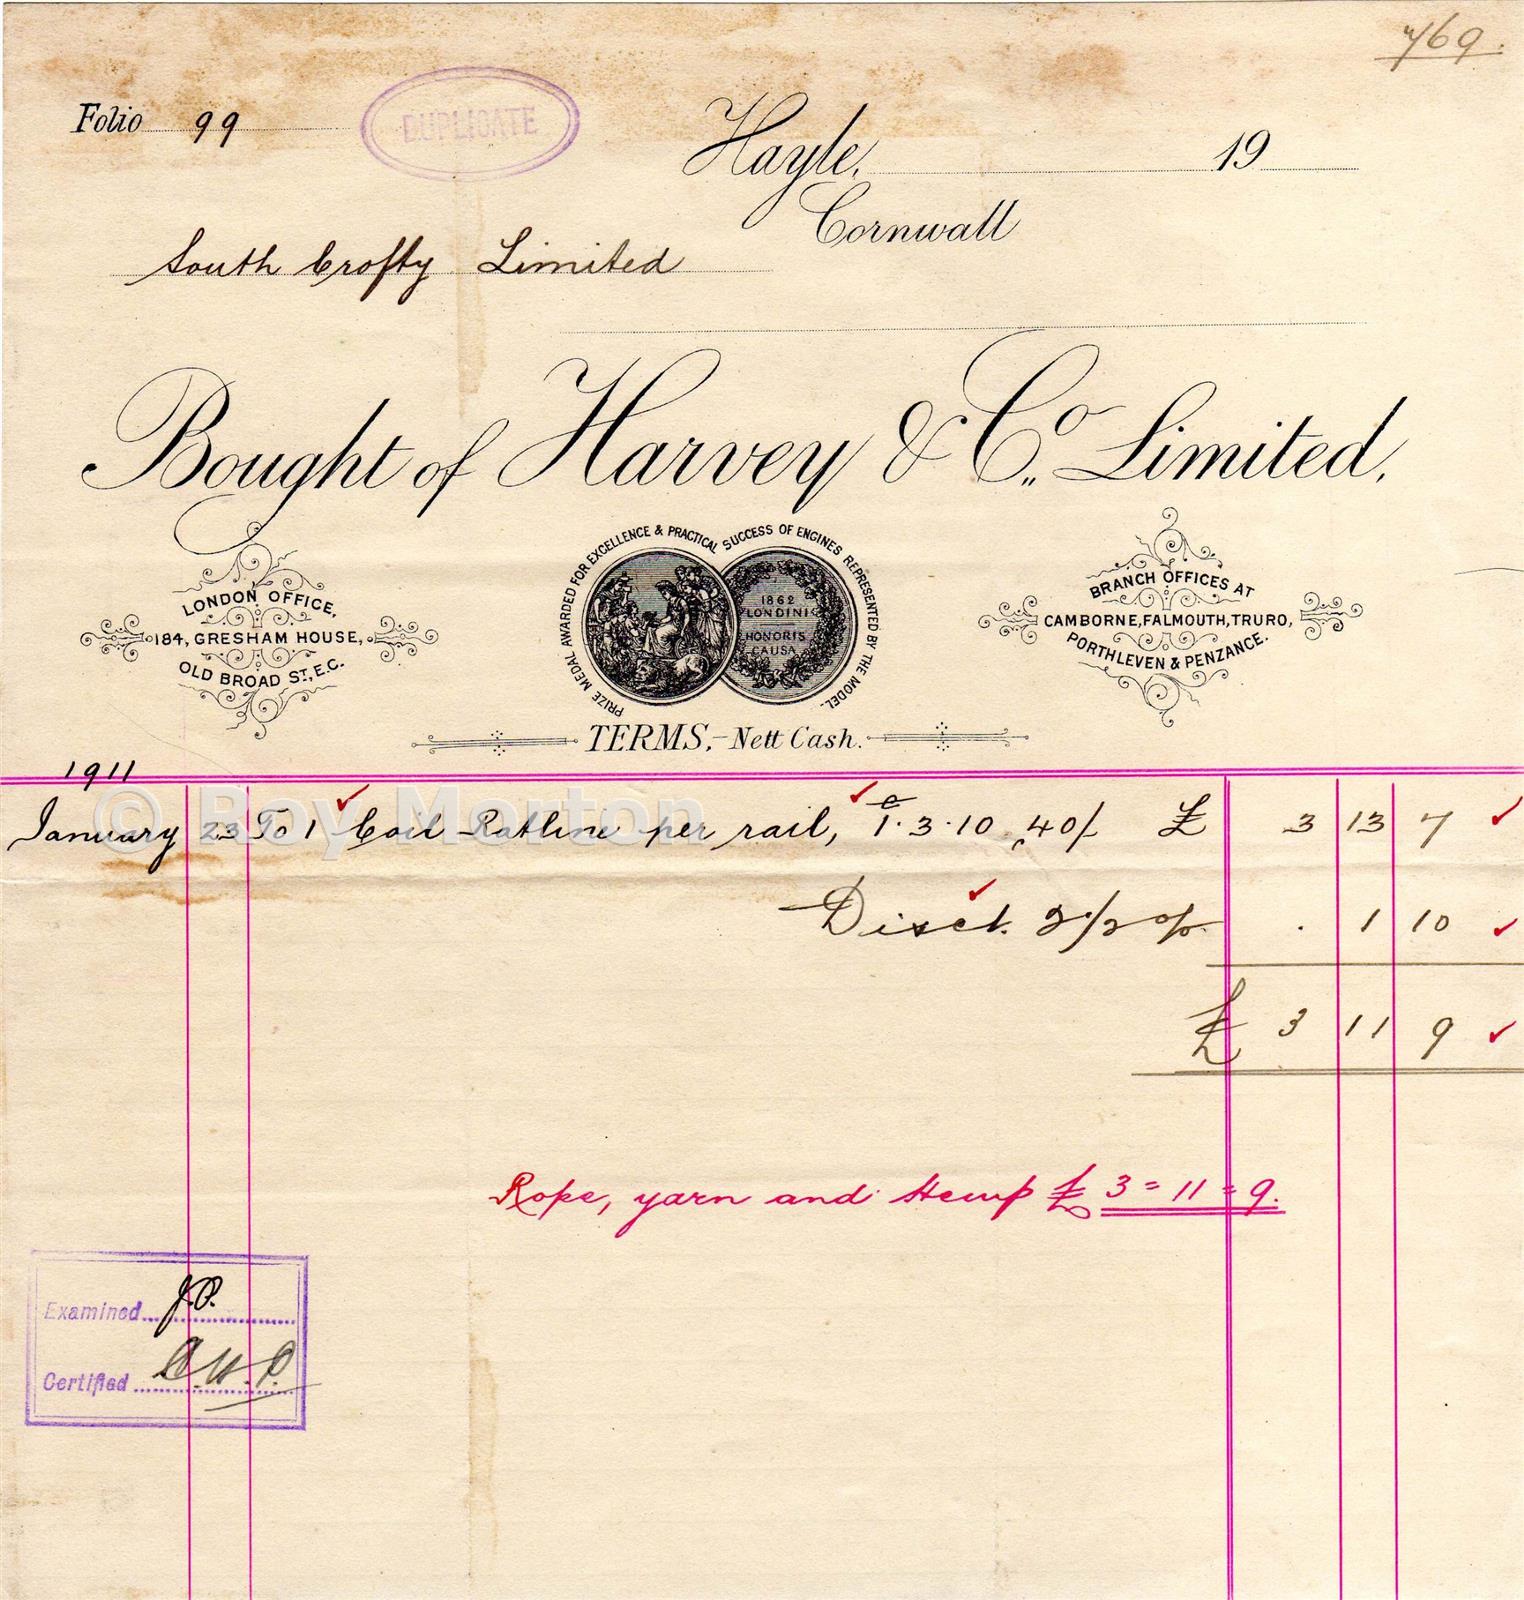 769.
Folio 99
DUPLICATE
Hayle, 19
Cornwall
South Crofty Limited
Bought of Harvey & Co. Limited.
PRIZE MEDAL AWARDED FOR EXCELLENCE & PRACTICAL SUCCESS OF ENGINES REPRESENTED BY THE MODEL.
LONDON OFFICE,
184, GRESHAM HOUSE,
OLD BROAD ST, E.C.
1862
LONDINI
HONORIS
CAUSA
BRANCH OFFICES AT
CAMBORNE, FALMOUTH, TRURO,
PORTHLEVEN & PENZANCE.
TERMS, - Nett Cash.
1911
© Roy Morton
January 23 To 1 Coil Ratline per rail, c 1.3.10, 40/- £ 3 13 7
Disct. 2 1/2 % . 1 10
£ 3 11 9
Rope, yarn and Hemp £ 3 = 11 = 9.
Examined J.P.
Certified